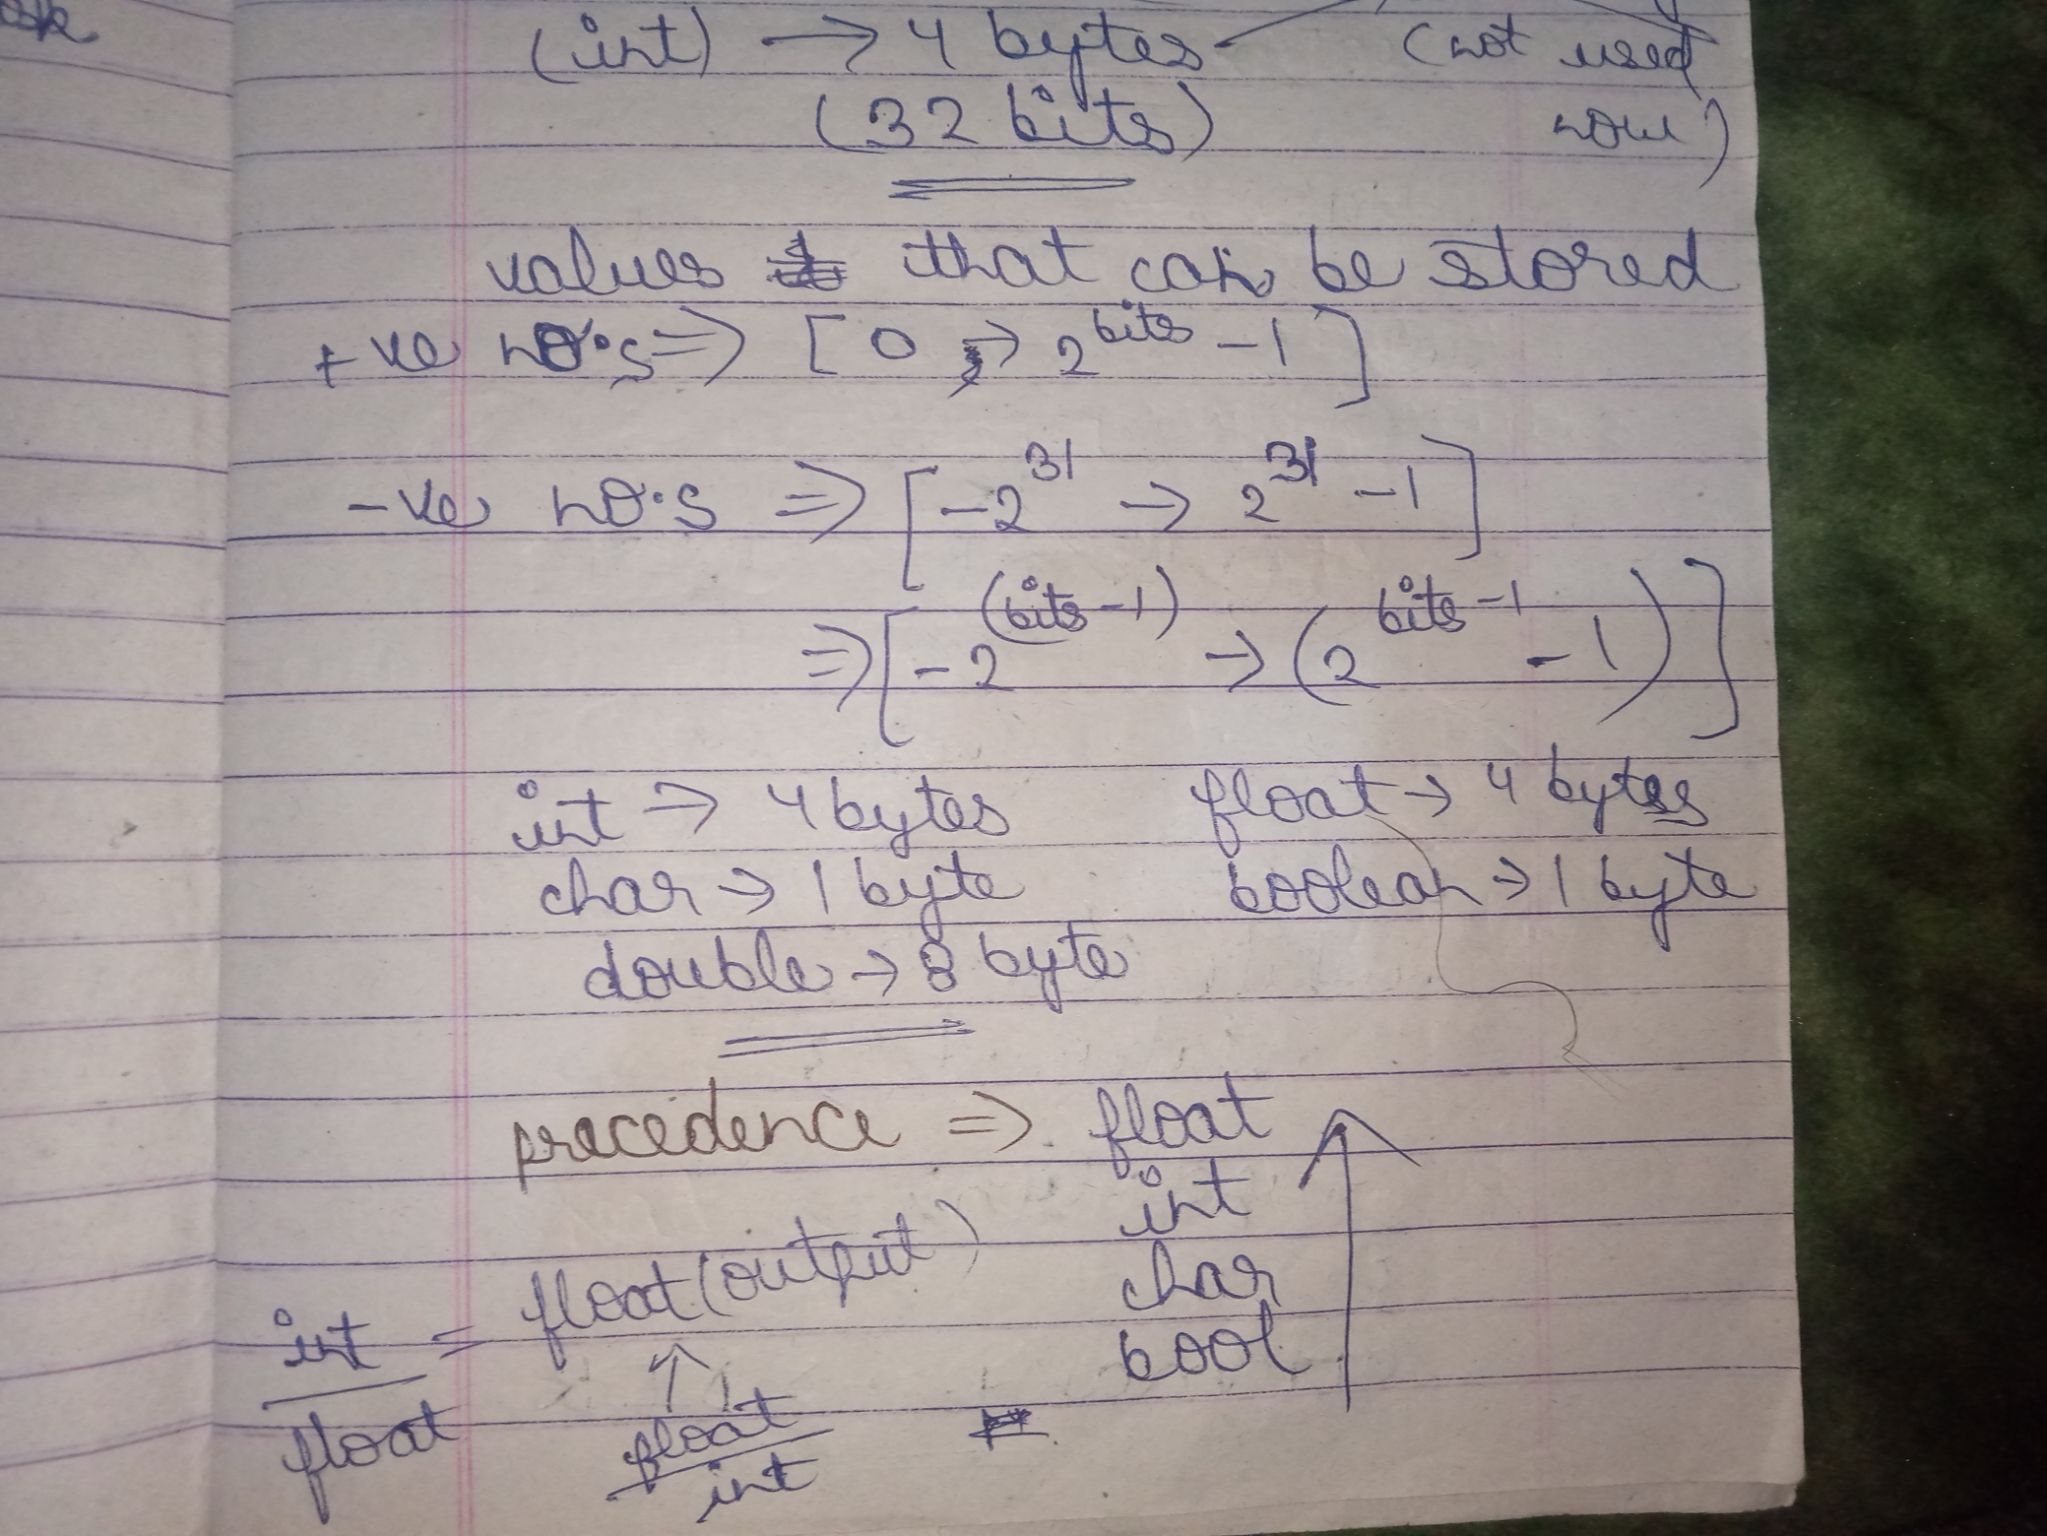 (int) → 4 bytes (not used
(32 bits) now)
values that can be stored
+ve no.s ⇒ [0 → 2^bits - 1]
-ve no.s ⇒ [-2^31 → 2^31 - 1]
⇒ [-2^(bits-1) → (2^bits-1 - 1)]
int → 4 bytes float → 4 bytes
char → 1 byte boolean → 1 byte
double → 8 byte
precedence ⇒ float
int
char
bool
int/float = float (output)
↑
float/int